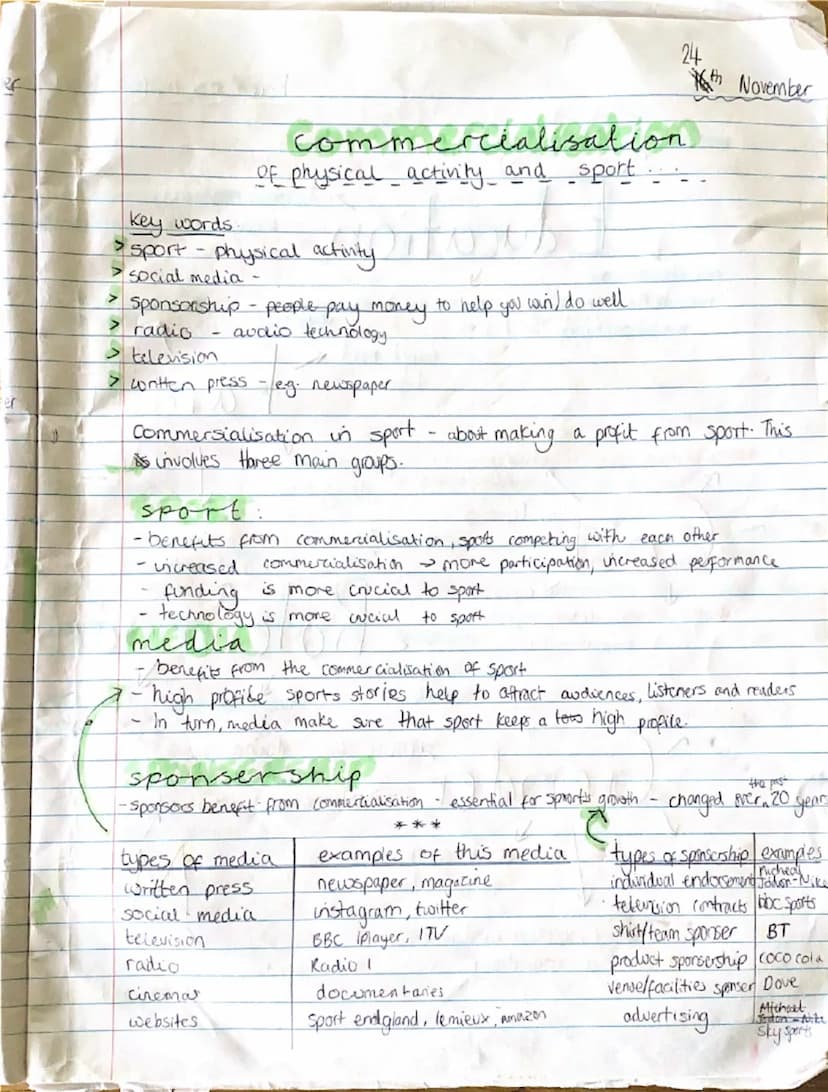 24
th November
commercialisation
of physical activity and sport ...
key words.
> sport - physical activity
> social media -
> sponsorship - people pay money to help you win / do well
> radio - audio technology
> television
> written press - eg. newspaper
Commersialisation in sport - about making a profit from sport. This
is involves three main groups.
sport :
- benefits from commercialisation, spots competing with each other
- increased commercialisation → more participation, increased performance
- funding is more crucial to sport
- technology is more crucial to sport
media
- benefits from the commercialisation of sport
- high profile sports stories help to attract audiences, listeners and readers
- In turn, media make sure that sport keeps a high profile.
sponsership
- sponsors benefit from commercialisation - essential for sports growth - changed over the past 20 years
***
types of media | examples of this media
written press | newspaper, magazine
social media | instagram, twitter
television | BBC iplayer, ITV
radio | Radio 1
cinemas | documentaries
websites | sport endgland, lemieux, amazon
types of sponsership | examples
individual endorsement | Jordon - Nike
television contracts | bbc sports
shirt/team sponser | BT
product sponsership | coco cola
venue/facilities sponser | Dove
advertising | Michael Jordon - Nike
sky sports